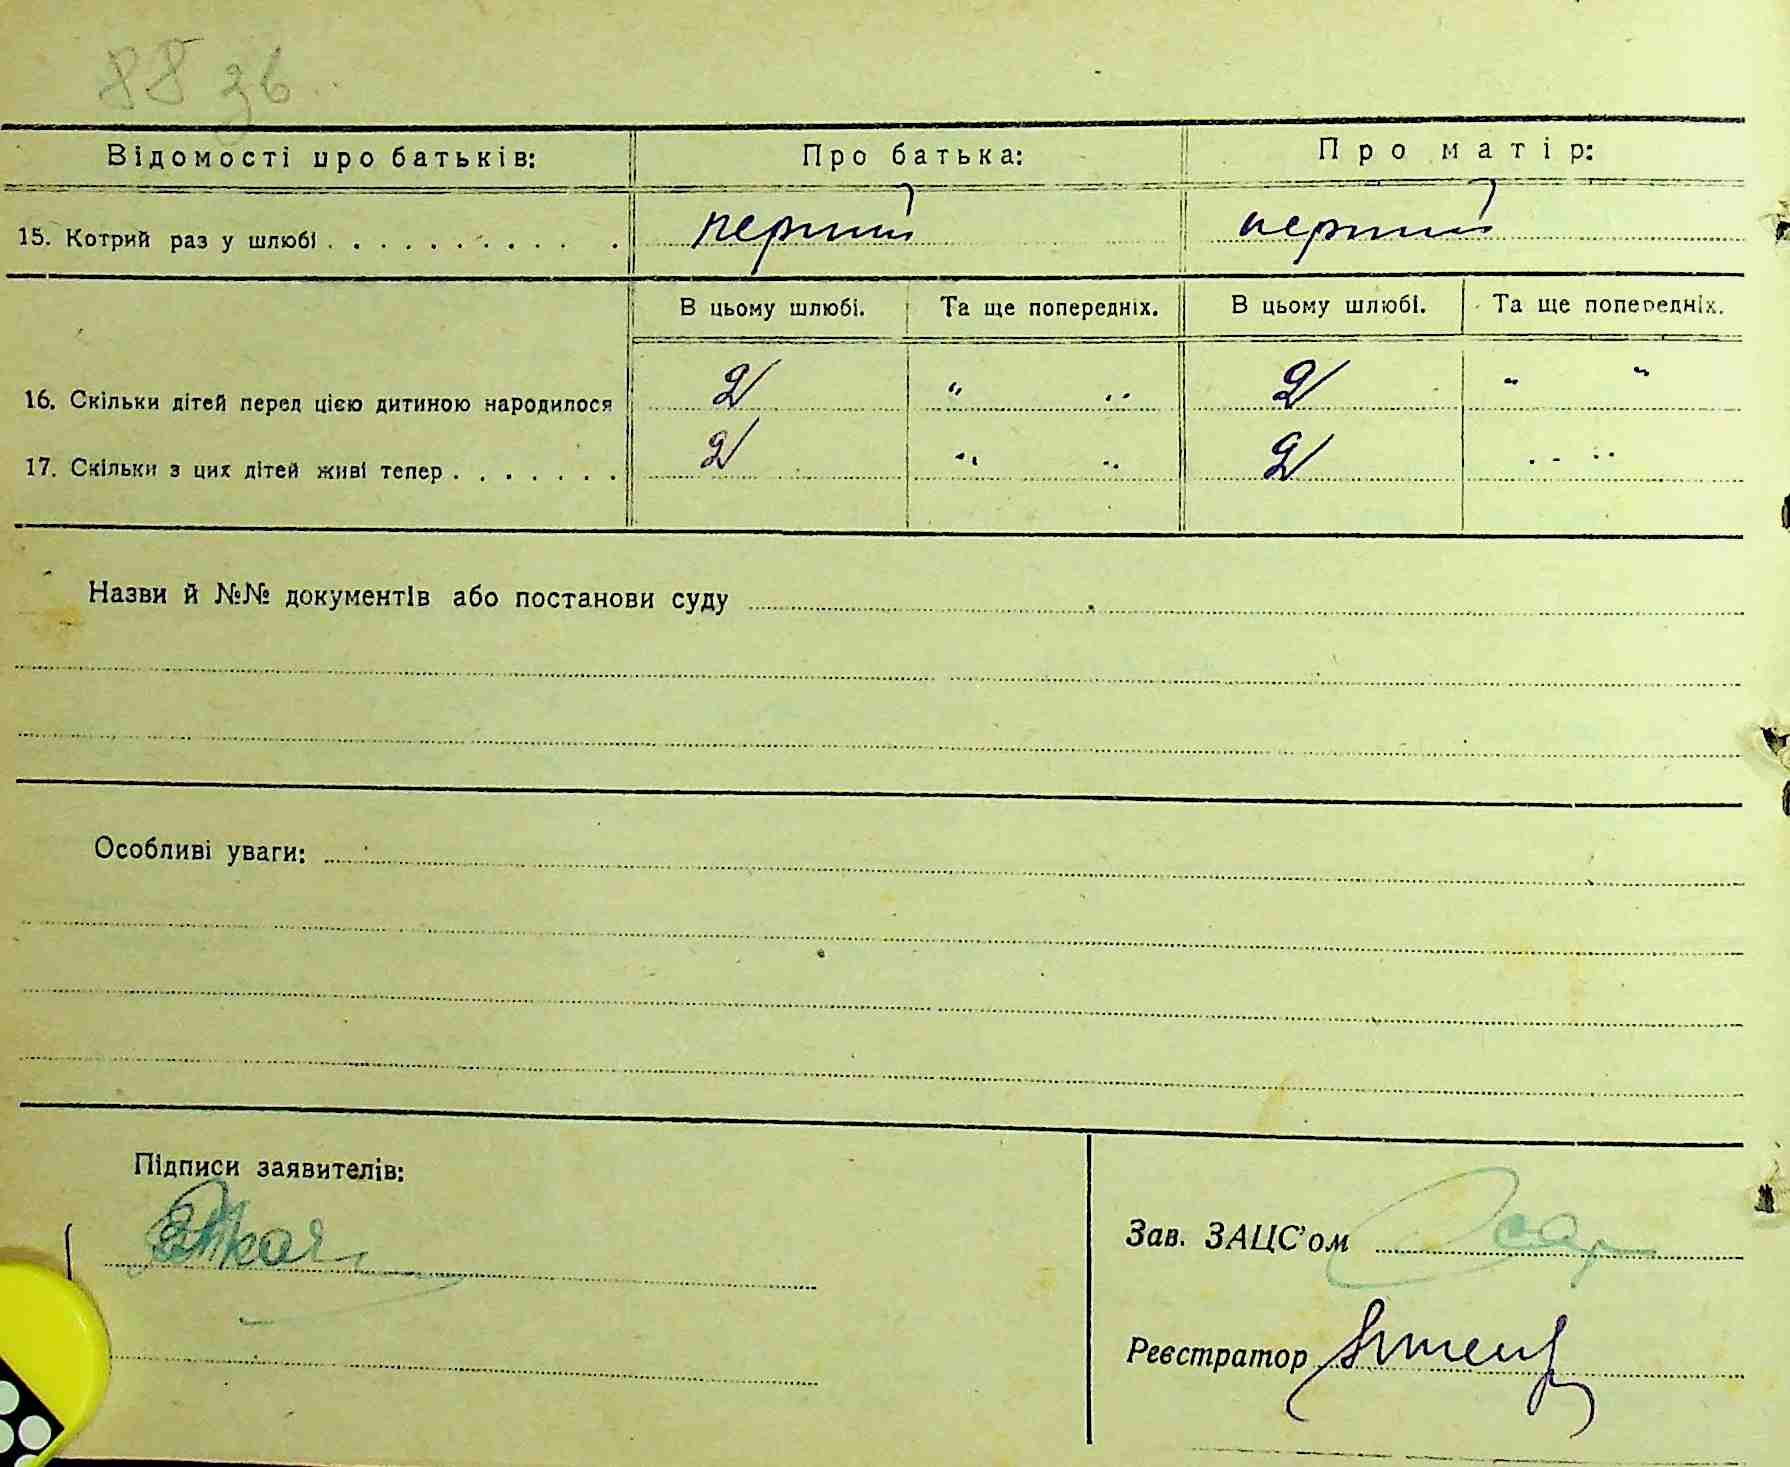 88 зв
Відомості про батьків: Про батька: Про матір:
15. Котрий раз у шлюбі . . . . . . . . . . . . перший перший
В цьому шлюбі. Та ще попередніх. В цьому шлюбі. Та ще попередніх.
16. Скільки дітей перед цією дитиною народилося 2 " " 2 " "
17. Скільки з цих дітей живі тепер . . . . . . . 2 " " 2 " "
Назви й №№ документів або постанови суду
Особливі уваги:
Підписи заявителів:
Зав. ЗАЦС'ом
Реєстратор